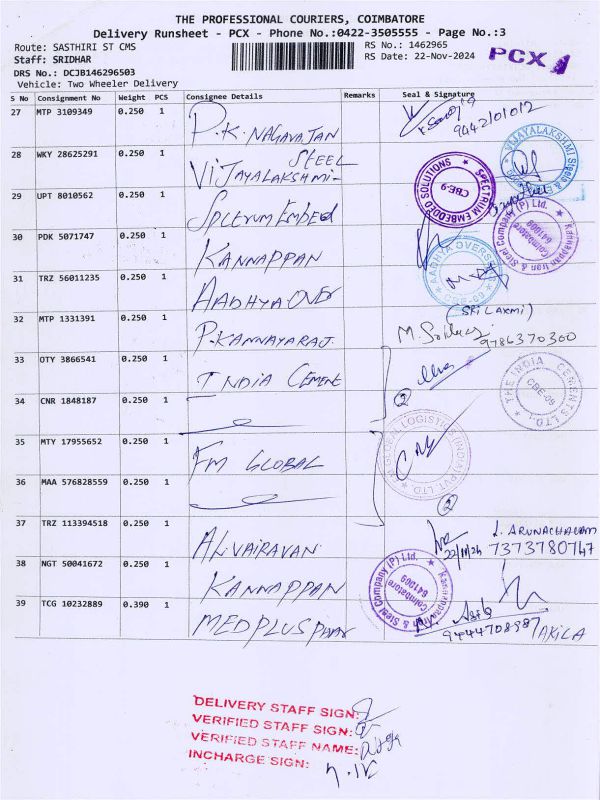 THE PROFESSIONAL COURIERS, COIMBATORE
Delivery Runsheet - PCX - Phone No.:0422-3505555 - Page No.:3
Route: SASTHIRI ST CMS
RS No.: 1462965
Staff: SRIDHAR
RS Date: 22-Nov-2024
PCX
DRS No.: DCJB146296503
Vehicle: Two Wheeler Delivery
S No Consignment No Weight PCS Consignee Details Remarks Seal & Signature
27 MTP 3109349 0.250 1 P.K. NAGAVAJAN 9442101012
28 WKY 28625291 0.250 1 VIJAYALAKSHMI- STEEL
VIJAYALAKSHMI Steels &
29 UPT 8010562 0.250 1
SPECTRUM EMBEDDED SOLUTIONS CBE-9
30 PDK 5071747 0.250 1 KANNAPPAN
Kannappan Iran & Steel Company (P) Ltd. Coimbatore 641009
31 TRZ 56011235 0.250 1 AADHYA OVER
AADHYA OVERSE
(SRI LAXMI)
32 MTP 1331391 0.250 1 P.KANNAYARAJ 9786370300
33 OTY 3866541 0.250 1 INDIA CEMENT
THE INDIA CEMENTS LTD. CBE-09
2
34 CNR 1848187 0.250 1
35 MTY 17955652 0.250 1 FM GLOBAL
GLOBAL LOGISTICS (INDIA) PVT. LTD
36 MAA 576828559 0.250 1
2
37 TRZ 113394518 0.250 1 AL.VAIRAVAN 22/11/24 L. ARUNACHALAM 7373780747
38 NGT 50041672 0.250 1 KANNAPPAN
Kannappan Iran & Steel Company (P) Ltd. Coimbatore 641009
39 TCG 10232889 0.390 1 MEDPLUS 9444708987 AKILA
DELIVERY STAFF SIGN:
VERIFIED STAFF SIGN:
VERIFIED STAFF NAME:
INCHARGE SIGN: